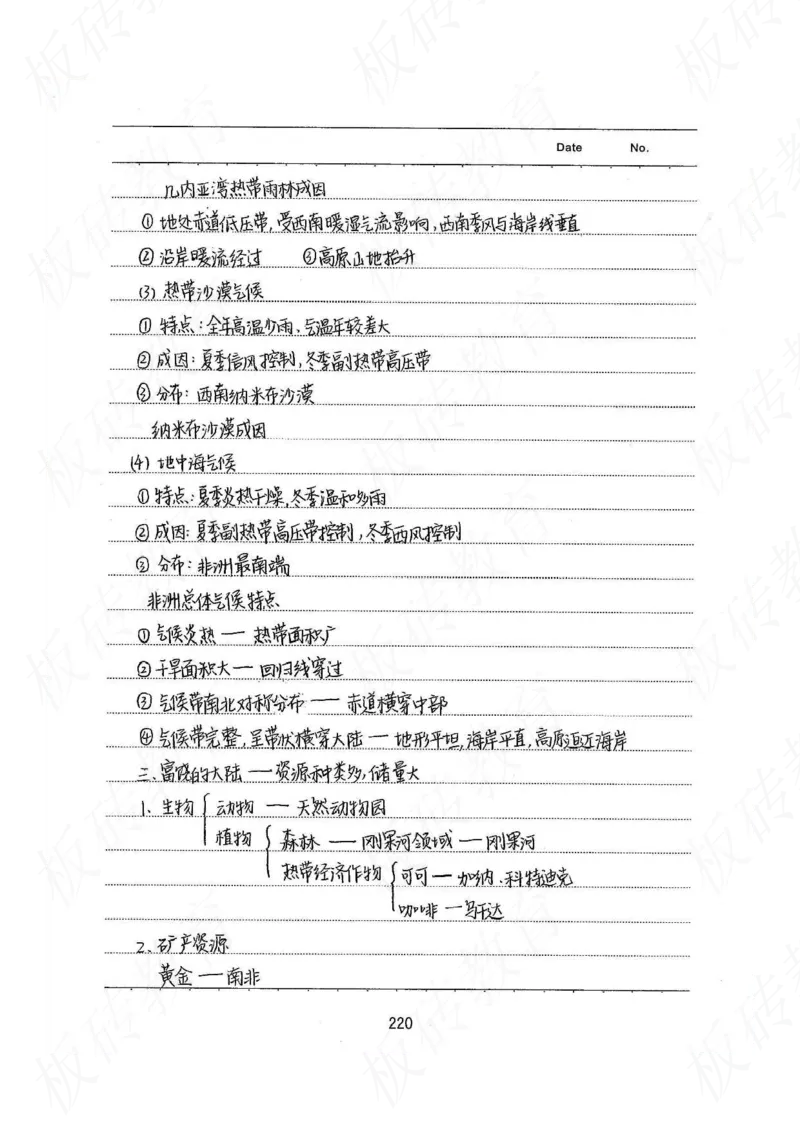 Date No.
几内亚湾热带雨林成因
① 地处赤道低压带,受西南暖湿气流影响,西南季风与海岸线垂直
② 沿岸暖流经过 ③高原山地抬升
(3) 热带沙漠气候
① 特点:全年高温少雨、气温年较差大
② 成因:夏季信风控制,冬季副热带高压带
③ 分布:西南纳米布沙漠
纳米布沙漠成因
(4) 地中海气候
① 特点:夏季炎热干燥,冬季温和多雨
② 成因:夏季副热带高压带控制,冬季西风控制
③ 分布:非洲最南端
非洲总体气候特点
① 气候炎热 — 热带面积广
② 干旱面积大 — 回归线穿过
③ 气候带南北对称分布 — 赤道横穿中部
④ 气候带完整,呈带状横穿大陆 — 地形平坦,海岸平直,高原逼近海岸
三、富饶的大陆 — 资源种类多,储量大
1、生物 动物 — 天然动物园
植物 森林 — 刚果河领域 — 刚果河
热带经济作物 可可 — 加纳、科特迪克
咖啡 — 乌干达
2、矿产资源
黄金 — 南非
220
板砖教育